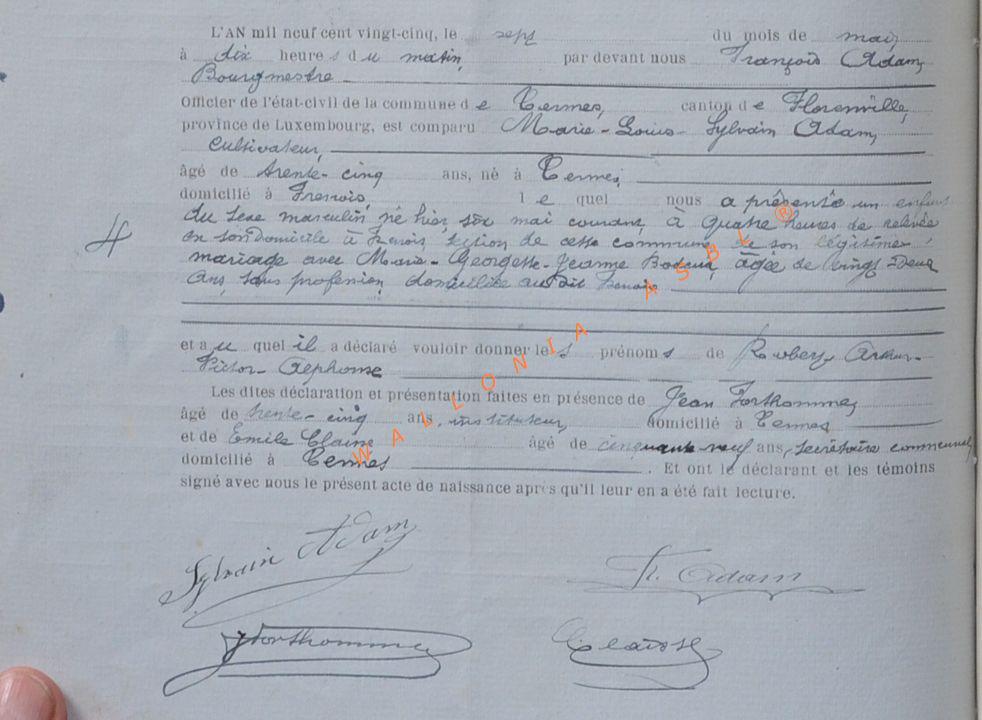 L'AN mil neuf cent vingt-cinq, le sept du mois de mai,
à dix heures du matin, par devant nous François Adam,
Bourgmestre
Officier de l'état-civil de la commune de Termes, canton de Florenville,
province de Luxembourg, est comparu Marie-Louis-Sylvain Adam,
Cultivateur,
âgé de trente-cinq ans, né à Termes,
domicilié à Frenois, lequel nous a présenté un enfant
4 du sexe masculin né hier, six mai courant, à quatre heures de relevée
en son domicile à Frenois, section de cette commune, de son légitime
mariage avec Marie-Georgette-Jeanne âgée de vingt-Deux
Ans, sans profession, domiciliée au dit Frenois
et au quel il a déclaré vouloir donner les prénoms de Robert-Arthur-
Victor-Alphonse
Les dites déclaration et présentation faites en présence de Jean Forthomme,
âgé de trente-cinq ans, instituteur, domicilié à Termes
et de Emile Claisse âgé de cinquante-neuf ans, secrétaire communal,
domicilié à Termes. Et ont le déclarant et les témoins
signé avec nous le présent acte de naissance après qu'il leur en a été fait lecture.
WALLONIA ASBL ®
Sylvain Adam F. Adam
JForthomme Claisse